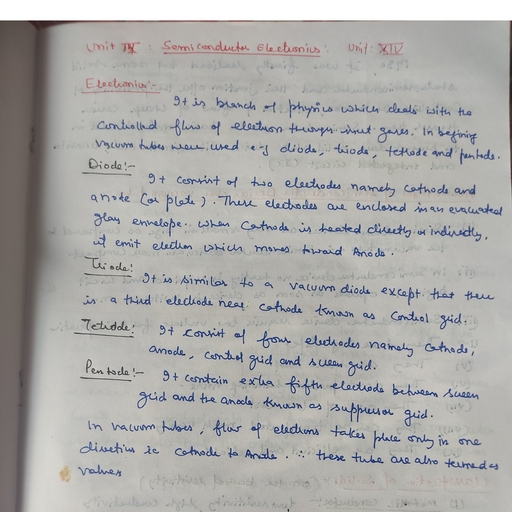 Unit IX : Semiconductor Electronics. Unit: XIV
Electronics:-
It is branch of physics which deals with the
controlled flow of electron through inert gases. In begining
vacuum tubes were used e.g diode, triode, tetrode and pentode.
Diode:-
It consist of two electrodes namely cathode and
anode (or plate). These electrodes are enclosed in an evacuated
glass envelope. when Cathode is heated directly or indirectly,
it emit electron which moves toward Anode.
Triode:- It is similar to a vacuum diode except that there
is a third electrode near cathode known as control grid.
Tetrode: It consist of four electrodes namely Cathode,
anode, control grid and screen grid.
Pentode:- It contain extra fifth electrode between screen
grid and the anode known as suppressor grid.
In vacuum tubes, flow of electrons takes place only in one
direction ie cathode to Anode. ∴ these tube are also termed as
valves